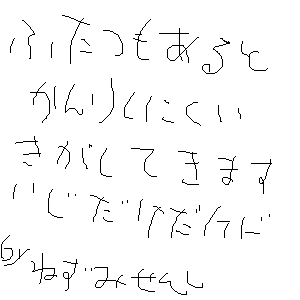 ふたつもあると
かんりしにくい
きがしてきます
いじだけだけど
byねずみせんし